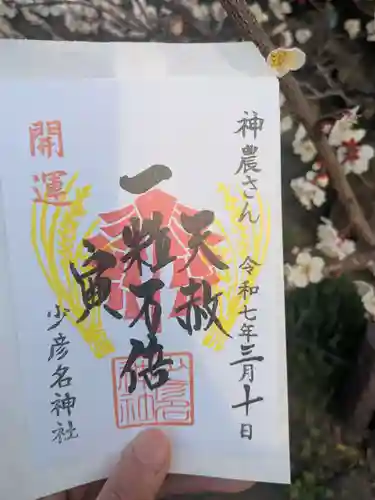 神農さん 令和七年三月十日
天赦
一粒万倍
寅
開運
少彦名神社